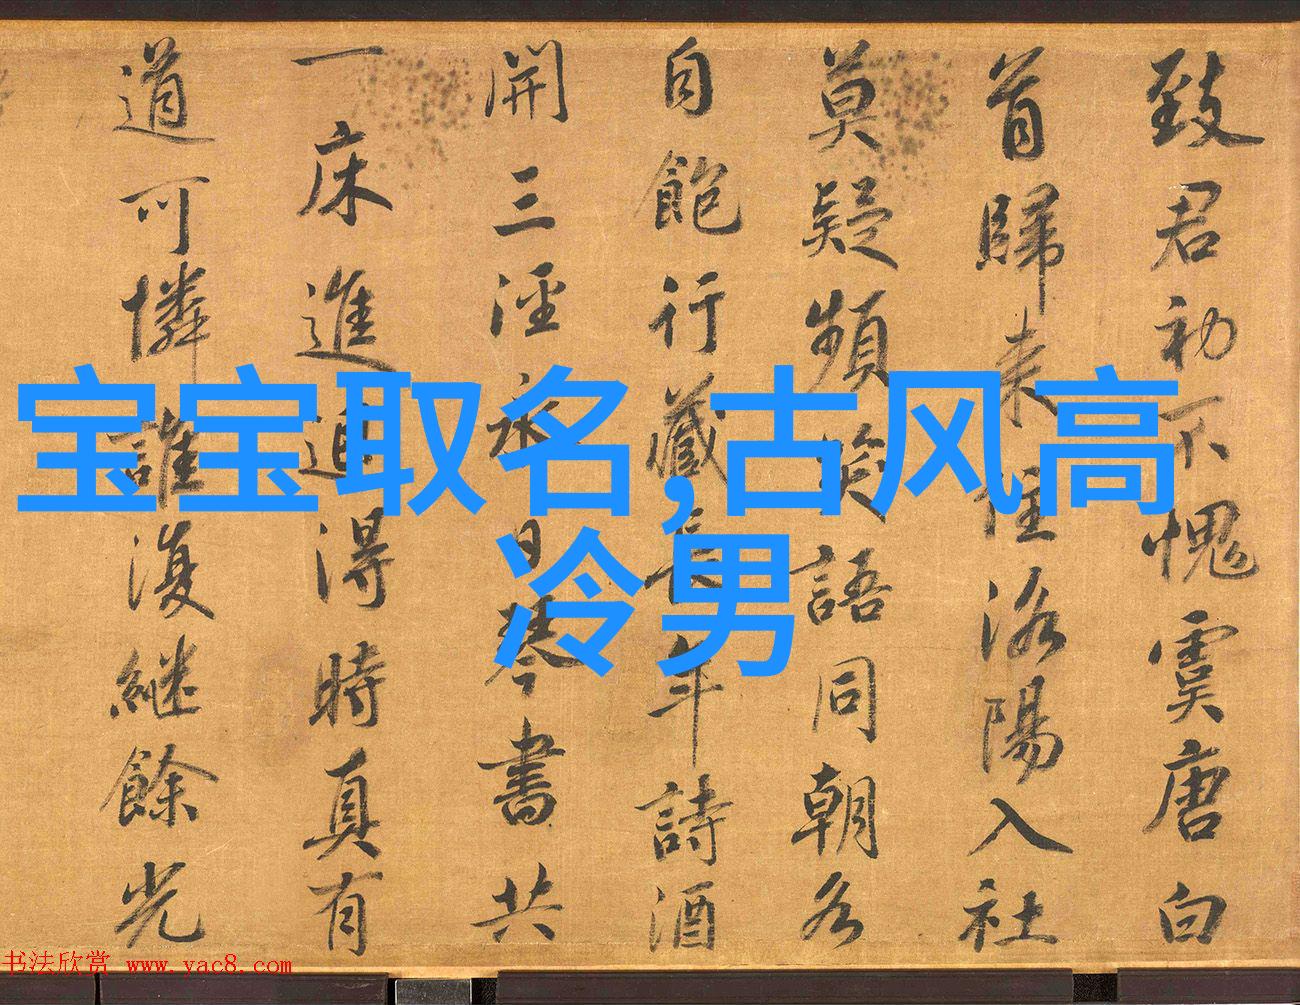 宝宝取名,古风高
冷男
致君初不愧虞唐白
首歸来洛陽入社
莫疑頻語同朝各
自飽行藏長年詩酒
開三徑永日琴書共
一床進退得時真有
道可憐誰復継餘光
书法欣赏 www.yac8.com